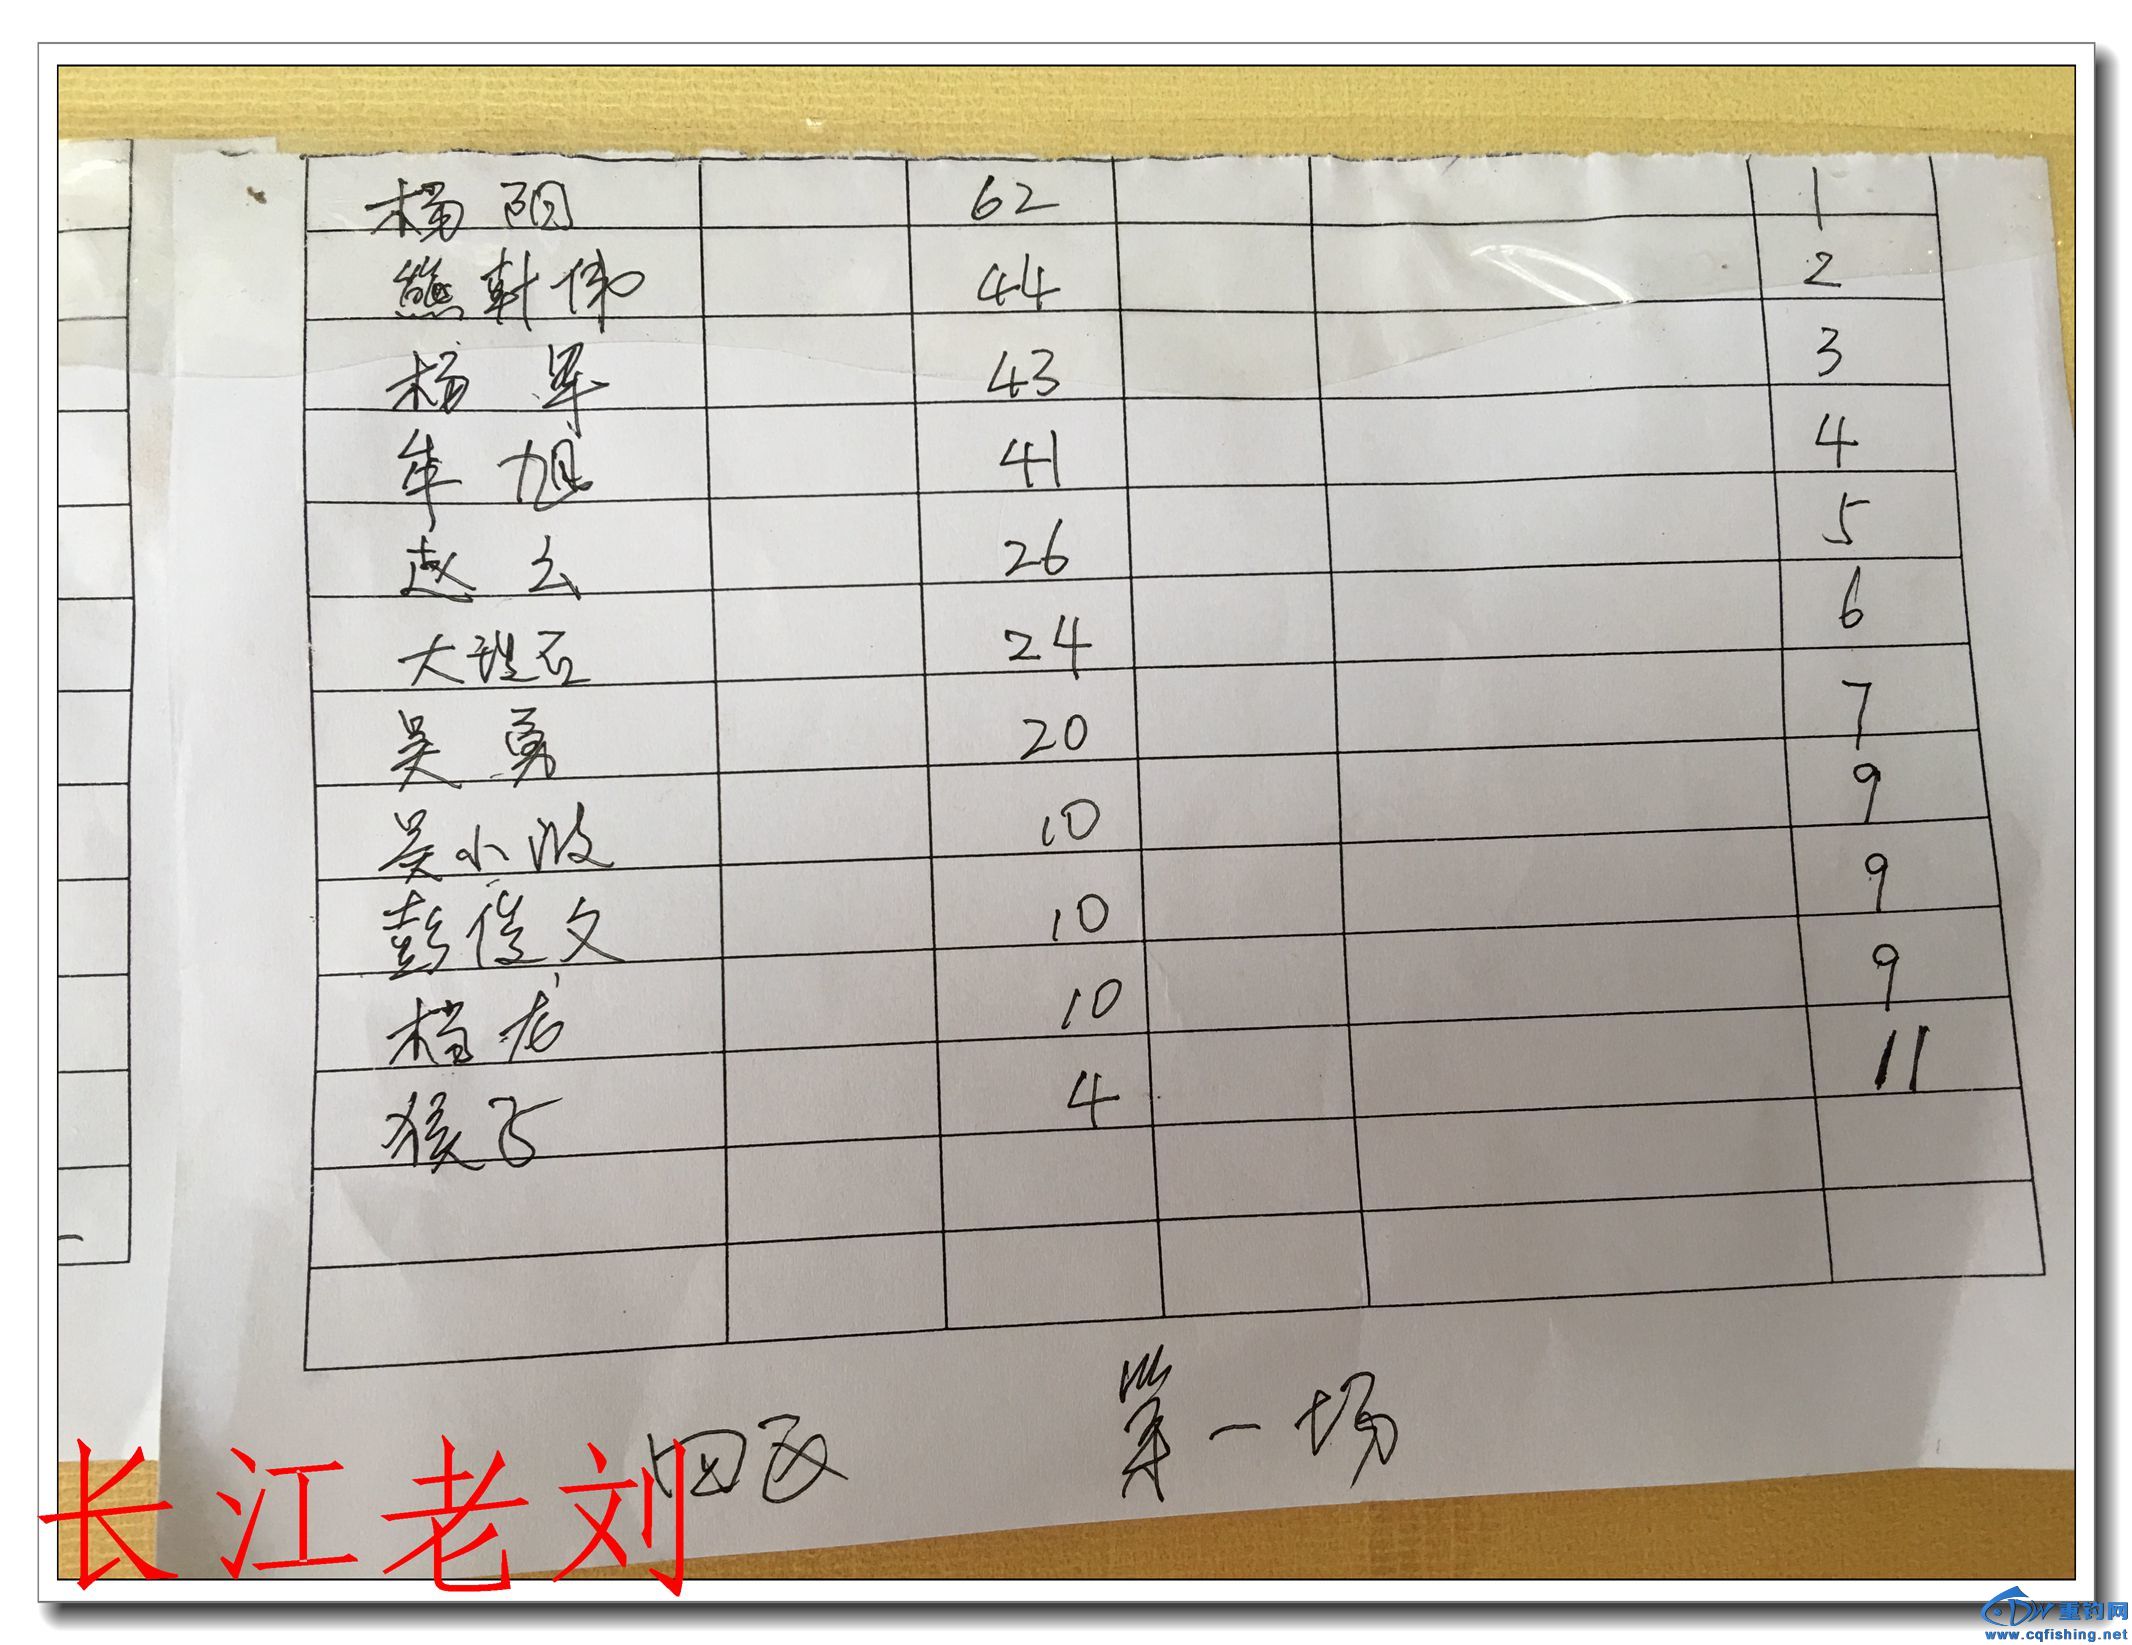 杨阳 62 1
熊轩伟 44 2
杨军 43 3
牟旭 41 4
赵云 26 5
大理石 24 6
吴勇 20 7
吴小波 10 9
彭俊文 10 9
档龙 10 9
猴子 4 11
四区 第一场
长江老刘
重钓网
www.cqfishing.net